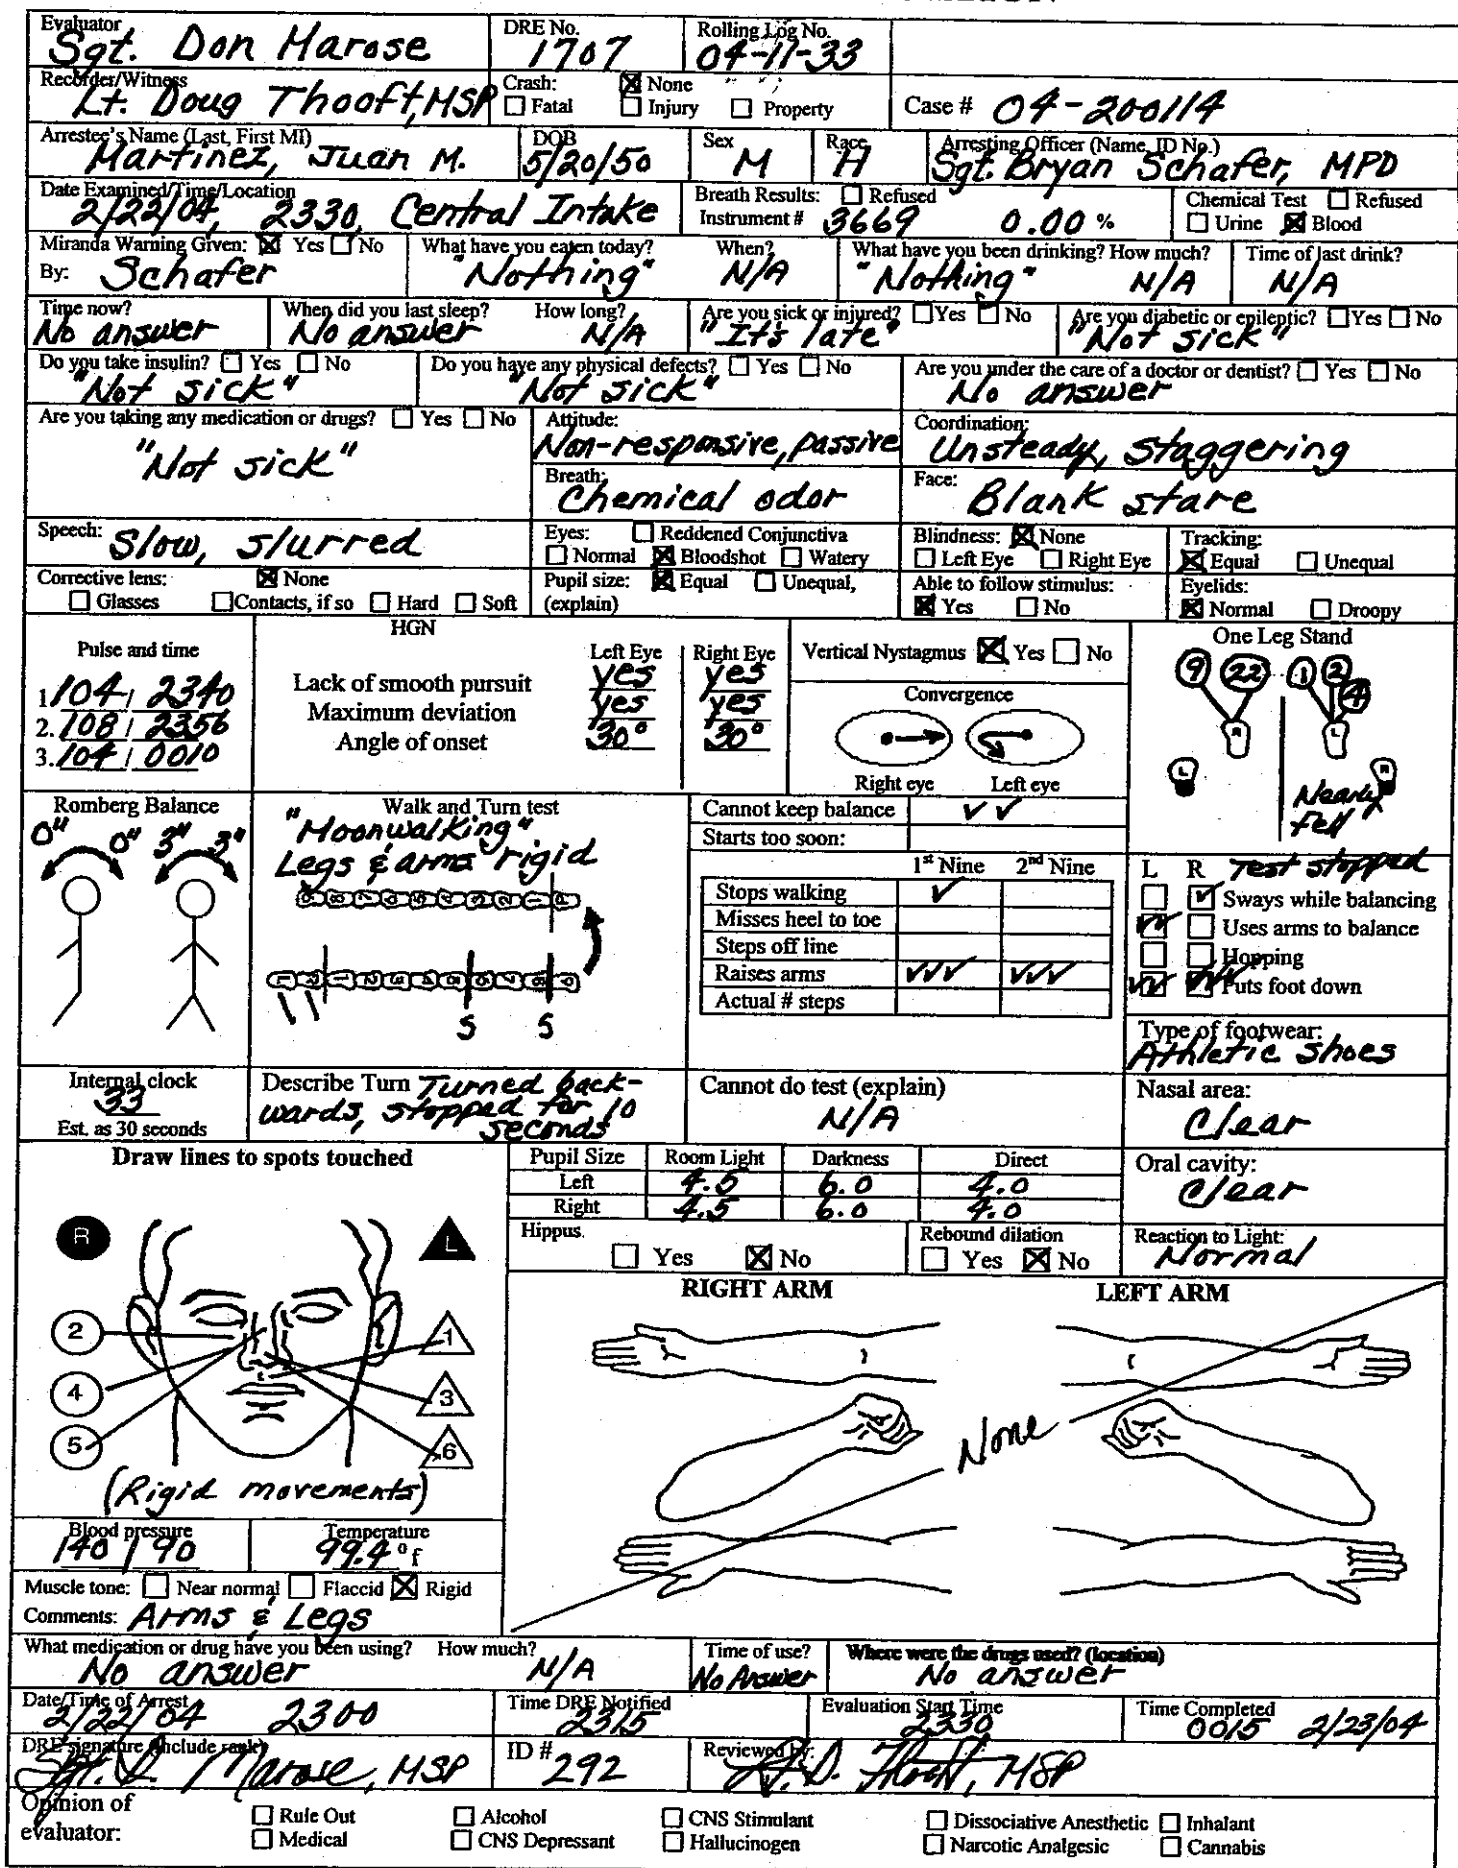 Evaluator
Sgt. Don Marose
DRE No.
1707
Rolling Log No.
04-11-33
Recorder/Witness
Lt. Doug Thooft, MSP
Crash: ☒ None
☐ Fatal ☐ Injury ☐ Property
Case # 04-200114
Arrestee's Name (Last, First MI)
Martinez, Juan M.
DOB
5/20/50
Sex
M
Race
H
Arresting Officer (Name, ID No.)
Sgt. Bryan Schafer, MPD
Date Examined/Time/Location
2/22/04, 2330, Central Intake
Breath Results: ☐ Refused
Instrument # 3669 0.00 %
Chemical Test ☐ Refused
☐ Urine ☒ Blood
Miranda Warning Given: ☒ Yes ☐ No
By: Schafer
What have you eaten today?
"Nothing"
When?
N/A
What have you been drinking? How much?
"Nothing" N/A
Time of last drink?
N/A
Time now?
No answer
When did you last sleep? How long?
No answer N/A
Are you sick or injured? ☐ Yes ☐ No
"It's late"
Are you diabetic or epileptic? ☐ Yes ☐ No
"Not sick"
Do you take insulin? ☐ Yes ☐ No
"Not sick"
Do you have any physical defects? ☐ Yes ☐ No
"Not sick"
Are you under the care of a doctor or dentist? ☐ Yes ☐ No
No answer
Are you taking any medication or drugs? ☐ Yes ☐ No
"Not sick"
Attitude:
Non-responsive, passive
Coordination:
Unsteady, staggering
Breath:
Chemical odor
Face:
Blank stare
Speech: Slow, slurred
Eyes: ☐ Reddened Conjunctiva
☐ Normal ☒ Bloodshot ☐ Watery
Blindness: ☒ None
☐ Left Eye ☐ Right Eye
Tracking:
☒ Equal ☐ Unequal
Corrective lens: ☒ None
☐ Glasses ☐ Contacts, if so ☐ Hard ☐ Soft
Pupil size: ☒ Equal ☐ Unequal,
(explain)
Able to follow stimulus:
☒ Yes ☐ No
Eyelids:
☒ Normal ☐ Droopy
Pulse and time
1. 104 / 2340
2. 108 / 2356
3. 104 / 0010
HGN
Left Eye Right Eye
Lack of smooth pursuit yes yes
Maximum deviation yes yes
Angle of onset 30° 30°
Vertical Nystagmus ☒ Yes ☐ No
Convergence
Right eye Left eye
One Leg Stand
9 22 1 2 4
R L
L R
Nearly fell
Test stopped
Romberg Balance
0" 0" 3" 3"
Walk and Turn test
"Moonwalking"
Legs & arms rigid
S S
Cannot keep balance ✓✓
Starts too soon:
1st Nine 2nd Nine
Stops walking ✓
Misses heel to toe
Steps off line
Raises arms ✓✓✓ ✓✓✓
Actual # steps
L R
Sways while balancing
Uses arms to balance
Hopping
Puts foot down
Type of footwear:
Athletic shoes
Internal clock
33
Est. as 30 seconds
Describe Turn Turned back-
wards, stopped for 10
seconds
Cannot do test (explain)
N/A
Nasal area:
Clear
Draw lines to spots touched
R L
2 1
4 3
5 6
(Rigid movements)
Pupil Size Room Light Darkness Direct
Left 4.5 6.0 4.0
Right 4.5 6.0 4.0
Oral cavity:
Clear
Hippus.
☐ Yes ☒ No
Rebound dilation
☐ Yes ☒ No
Reaction to Light:
Normal
RIGHT ARM LEFT ARM
None
Blood pressure
140 / 90
Temperature
99.4 °f
Muscle tone: ☐ Near normal ☐ Flaccid ☒ Rigid
Comments: Arms & Legs
What medication or drug have you been using? How much?
No answer N/A
Time of use?
No Answer
Where were the drugs used? (location)
No answer
Date/Time of Arrest
2/22/04 2300
Time DRE Notified
2315
Evaluation Start Time
2330
Time Completed
0015 2/23/04
DRE signature (Include rank)
Sgt. D. Marose, MSP
ID # 292
Reviewed by:
Lt. D. Thooft, MSP
Opinion of
evaluator:
☐ Rule Out ☐ Alcohol ☐ CNS Stimulant ☐ Dissociative Anesthetic ☐ Inhalant
☐ Medical ☐ CNS Depressant ☐ Hallucinogen ☐ Narcotic Analgesic ☐ Cannabis